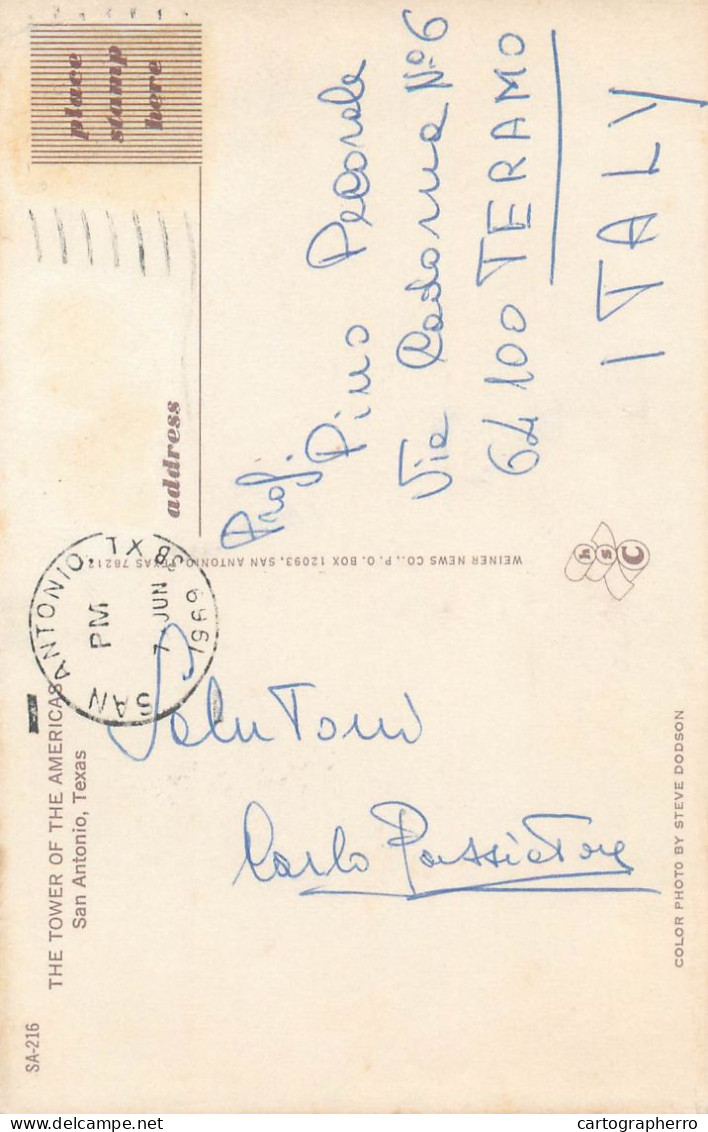 SA-216
THE TOWER OF THE AMERICAS
San Antonio, Texas
SAN ANTONIO, TX
PM
7 JUN
1999
place
stamp
here
address
Prof.
Pino Pecorale
Via Cadorna Nº 6
64100 TERAMO
ITALY
Salutoni
Carlo
WEINER NEWS CO., P. O. BOX 12093, SAN ANTONIO, TEXAS 78212
h s C
COLOR PHOTO BY STEVE DODSON
cartographerro